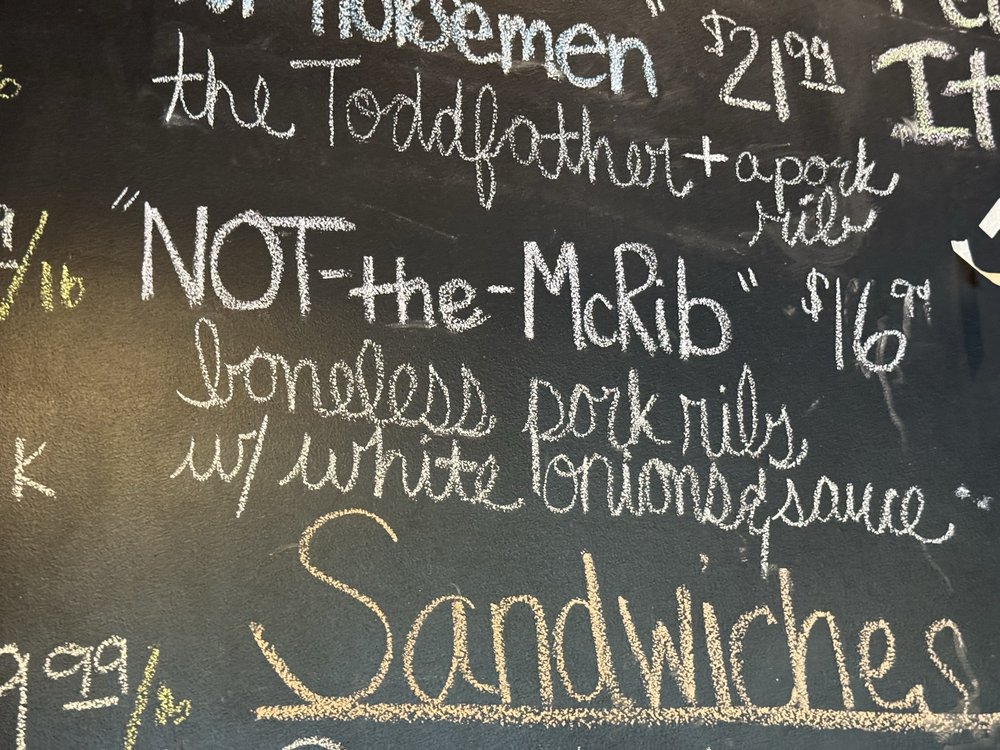 horsemen" $21.99
the Toddfather + a pork
rib
"NOT-the-McRib" $16.99
boneless pork ribs
w/ white onions & sauce
Sandwiches
It
/lb
K
9.99/lb